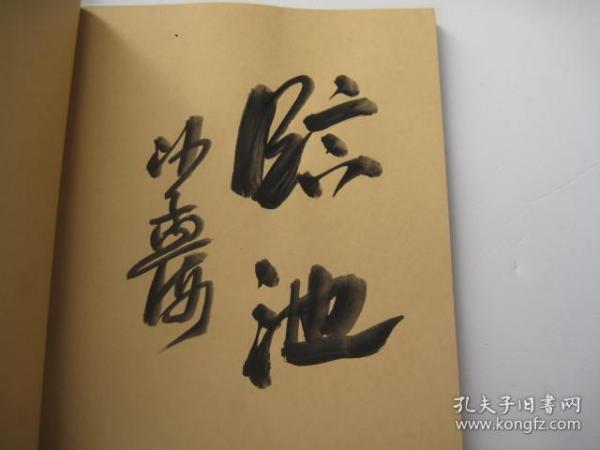 臨池
沙孟海
孔夫子旧書网
www.kongfz.com